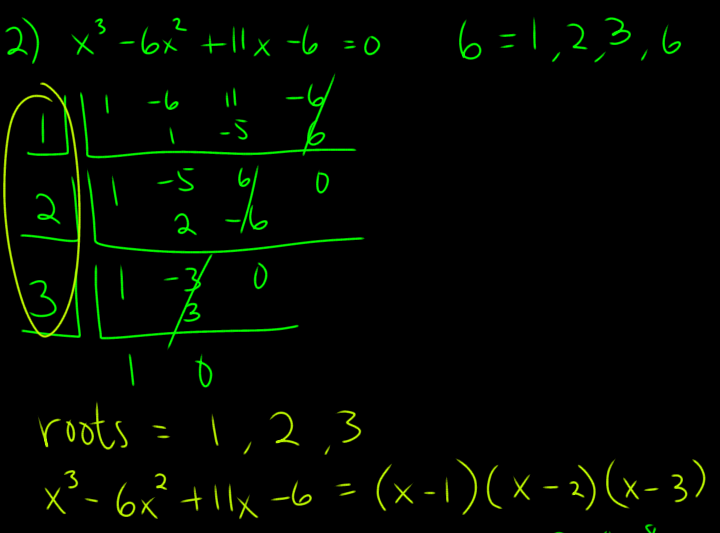 2) x³ -6x² +11x -6 =0 6 = 1, 2, 3, 6
1 1 -6 11 -6
1 -5 6
2 1 -5 6 0
2 -6
3 1 -3 0
3
1 0
roots = 1, 2, 3
x³ - 6x² +11x -6 = (x-1)(x-2)(x-3)